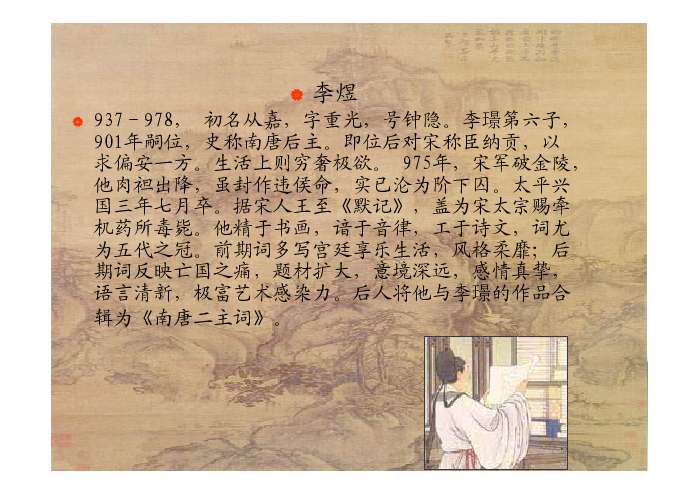 李煜
937－978， 初名从嘉，字重光，号钟隐。李璟第六子，
901年嗣位，史称南唐后主。即位后对宋称臣纳贡，以
求偏安一方。生活上则穷奢极欲。 975年，宋军破金陵，
他肉袒出降，虽封作违侯命，实已沦为阶下囚。太平兴
国三年七月卒。据宋人王至《默记》，盖为宋太宗赐牵
机药所毒毙。他精于书画，谙于音律，工于诗文，词尤
为五代之冠。前期词多写宫廷享乐生活，风格柔靡；后
期词反映亡国之痛，题材扩大，意境深远，感情真挚，
语言清新，极富艺术感染力。后人将他与李璟的作品合
辑为《南唐二主词》。